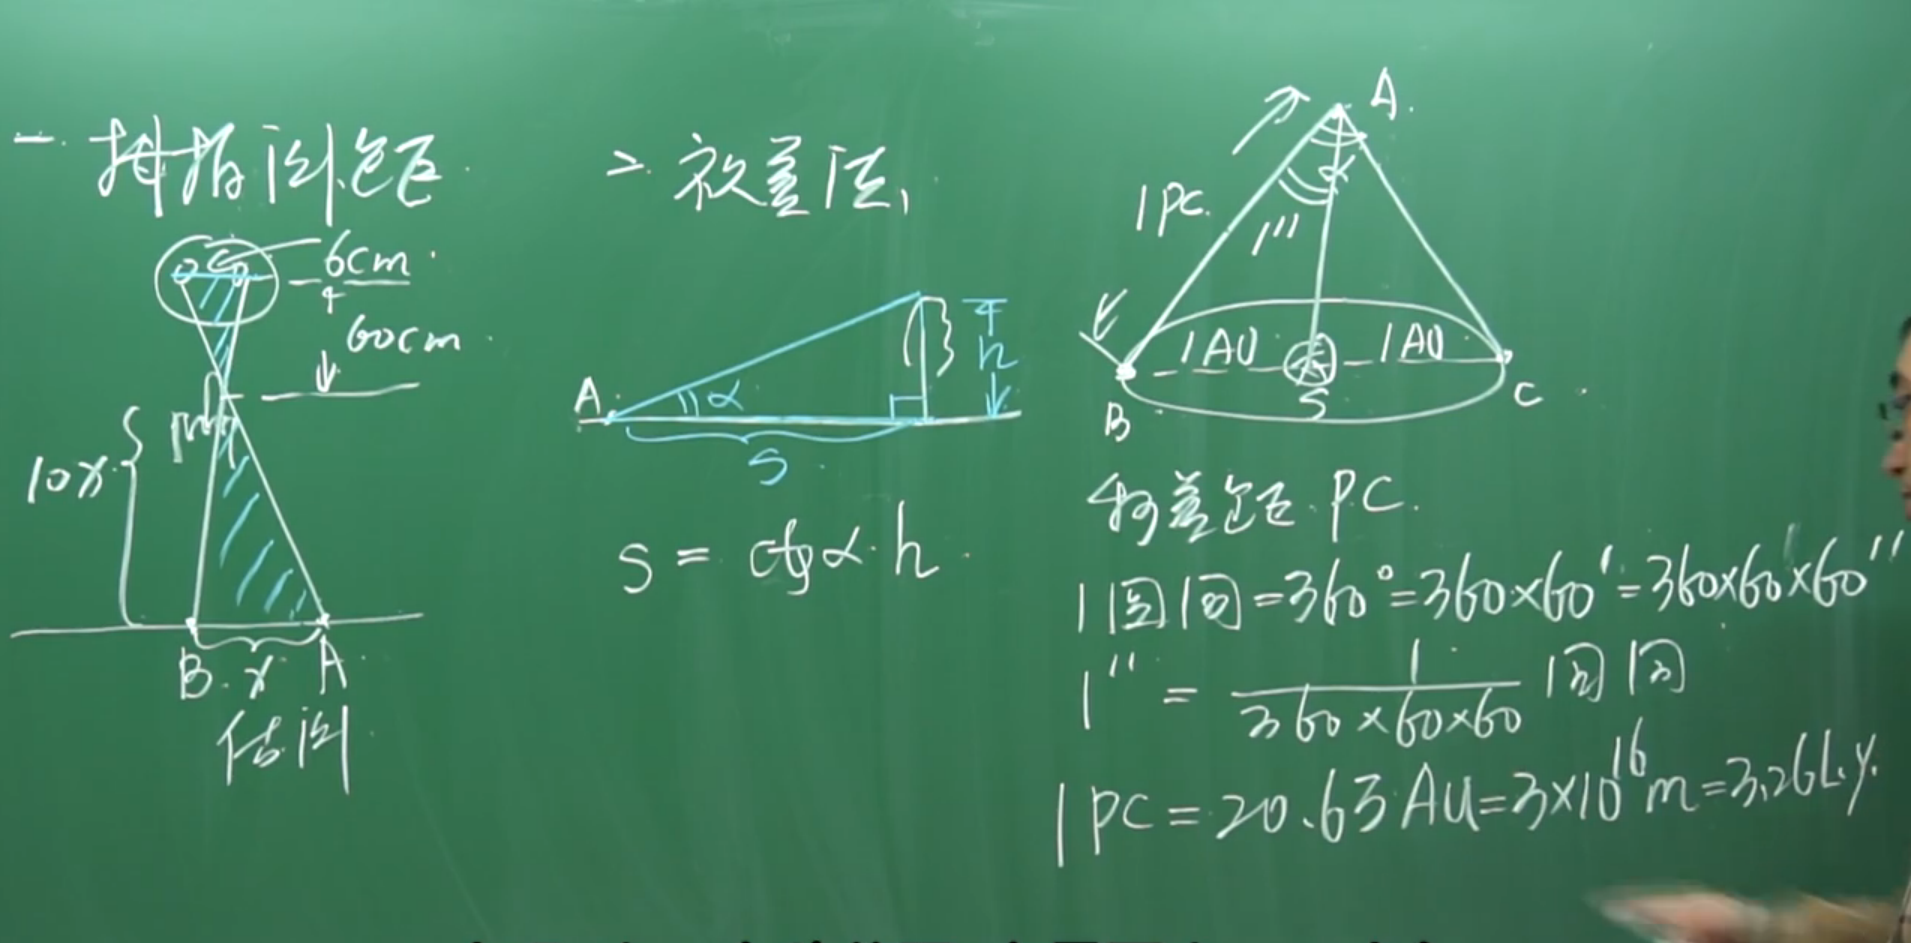 一. 拇指测距
6cm
60cm
10x
B. x A
估测
二. 视差法
A.
α
h
S
S = ctgα·h
A.
α
1PC.
1"
E
1AU
1AU
S
B
C
秒差距. PC.
1圆周=360°=360×60'=360×60×60"
1" = 1/360×60×60 圆周
1PC=20.63AU=3×10¹⁶m=3.26L.y.